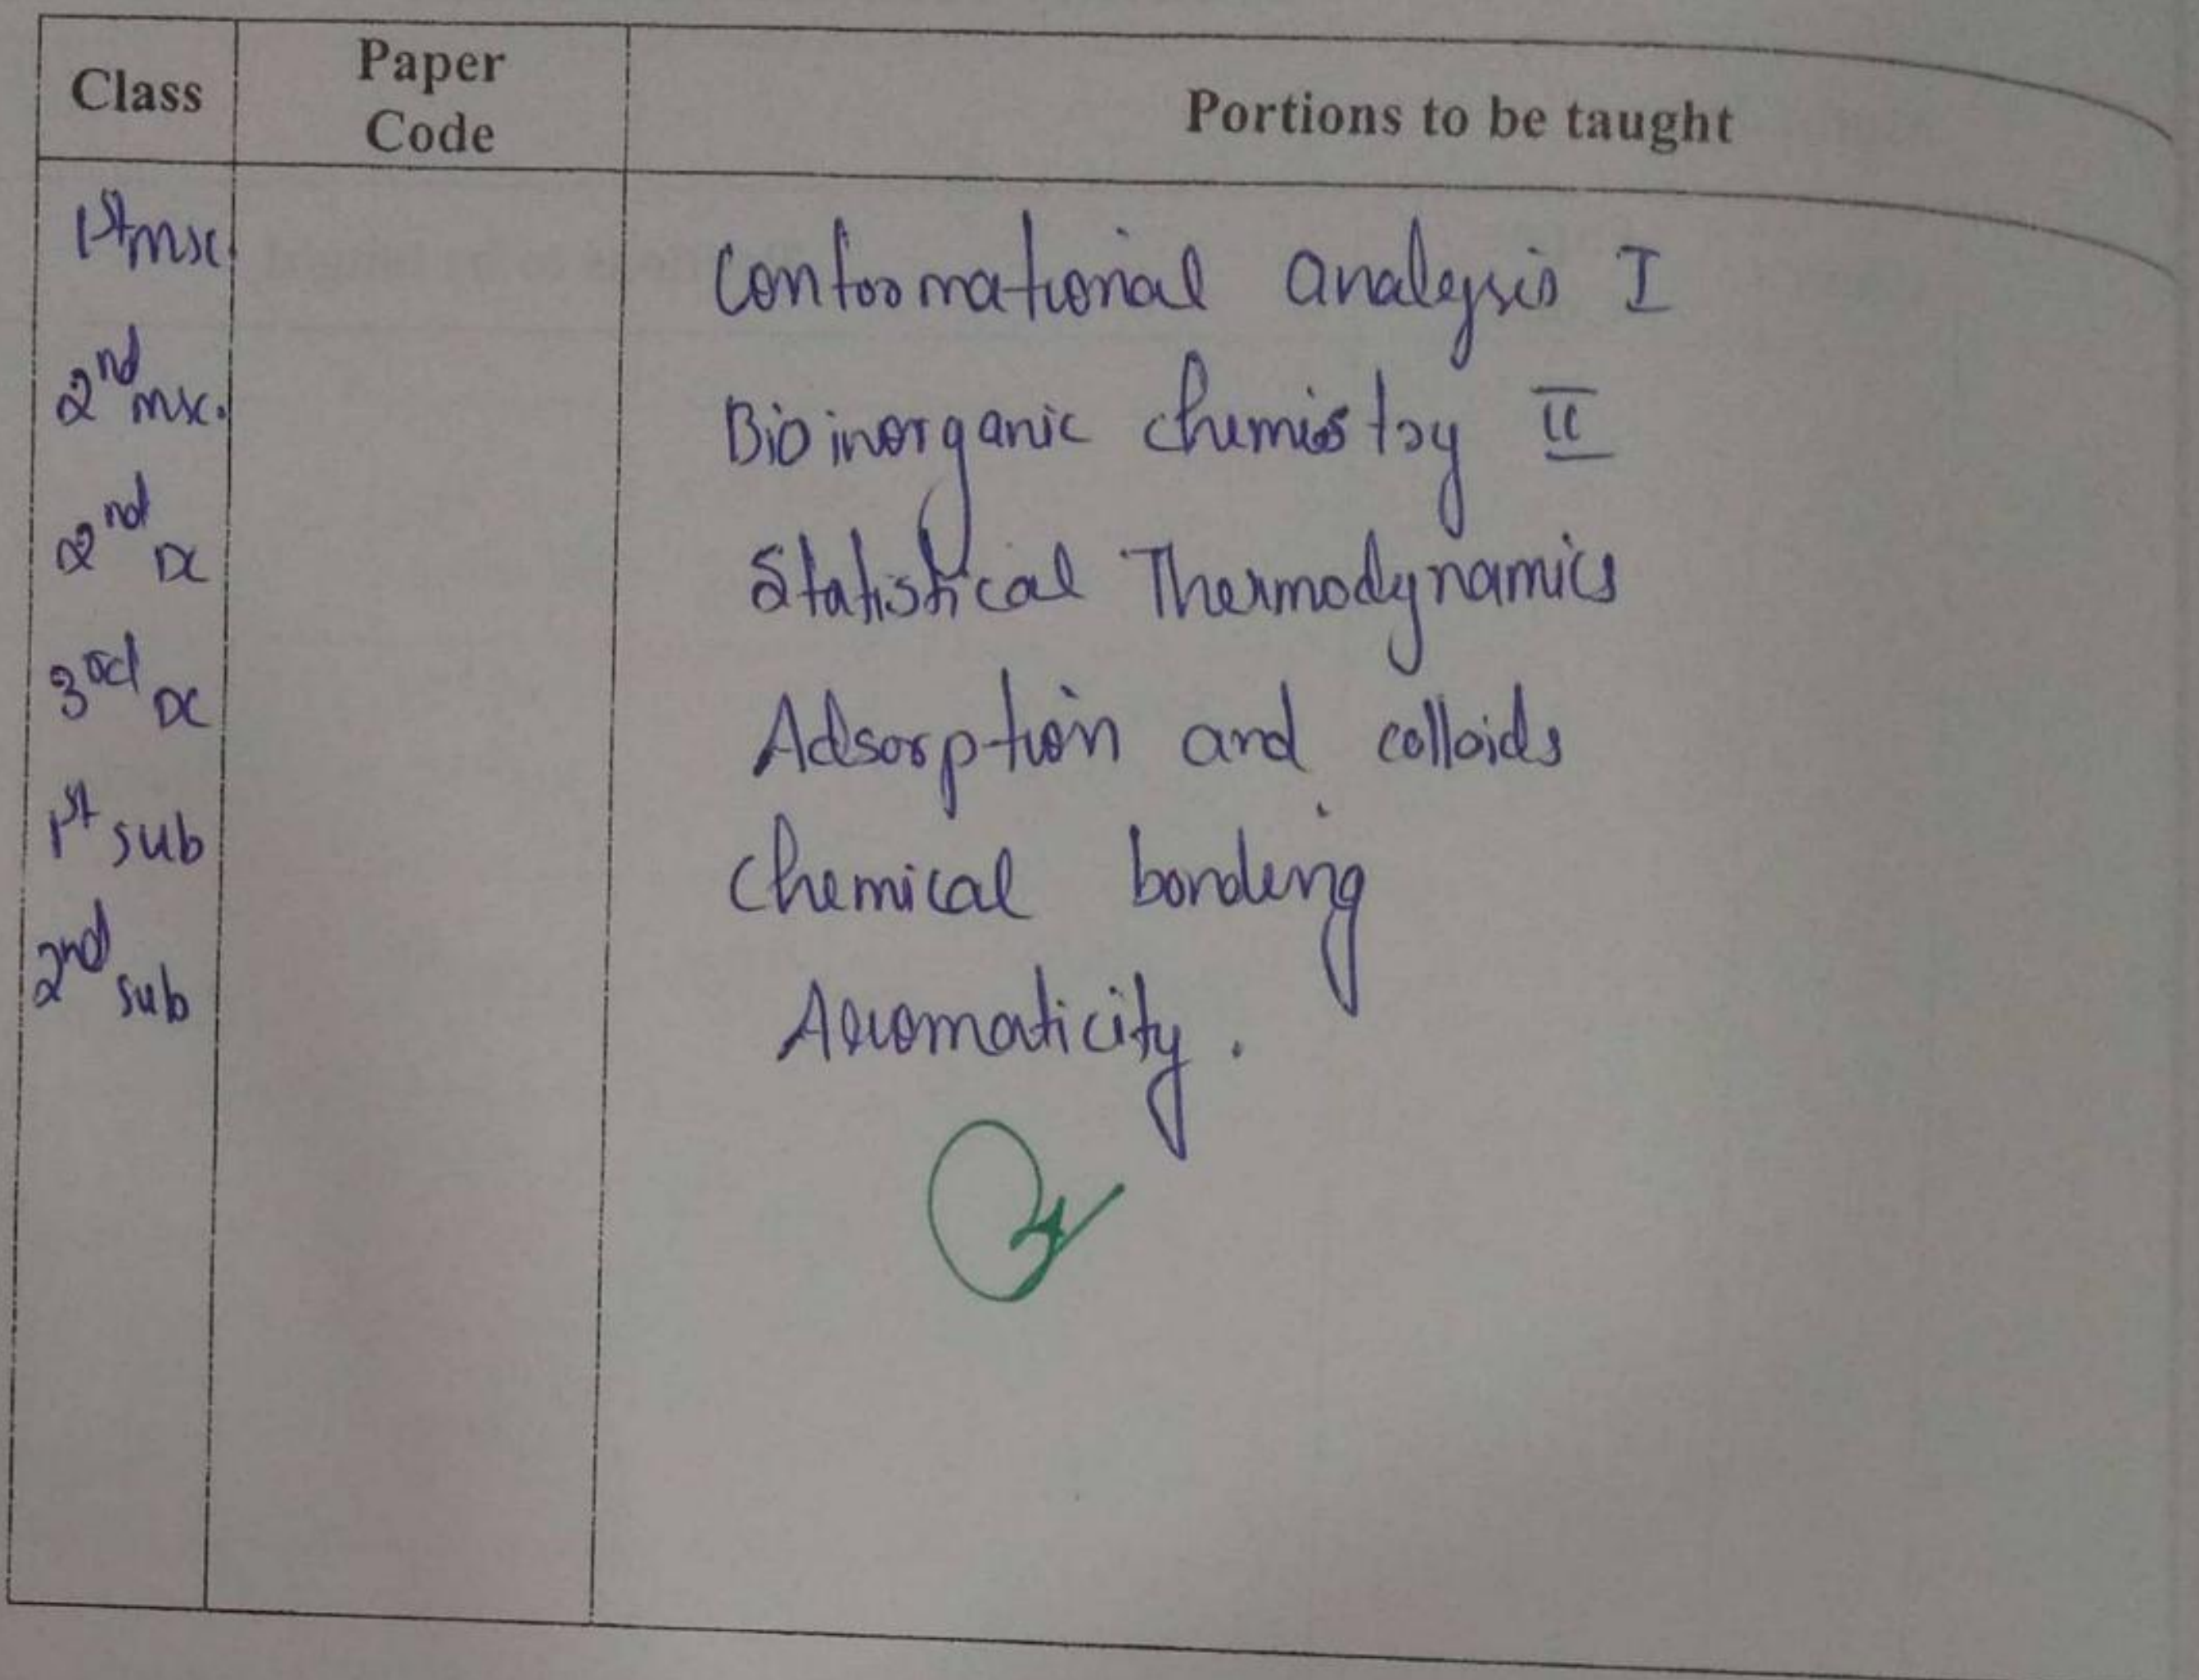 Class Paper Code Portions to be taught
1st msc Conformational analysis I
2nd msc. Bioinorganic chemistry II
2nd DC Statistical Thermodynamics
3rd DC Adsorption and colloids
1st sub Chemical bonding
2nd sub Aromaticity.